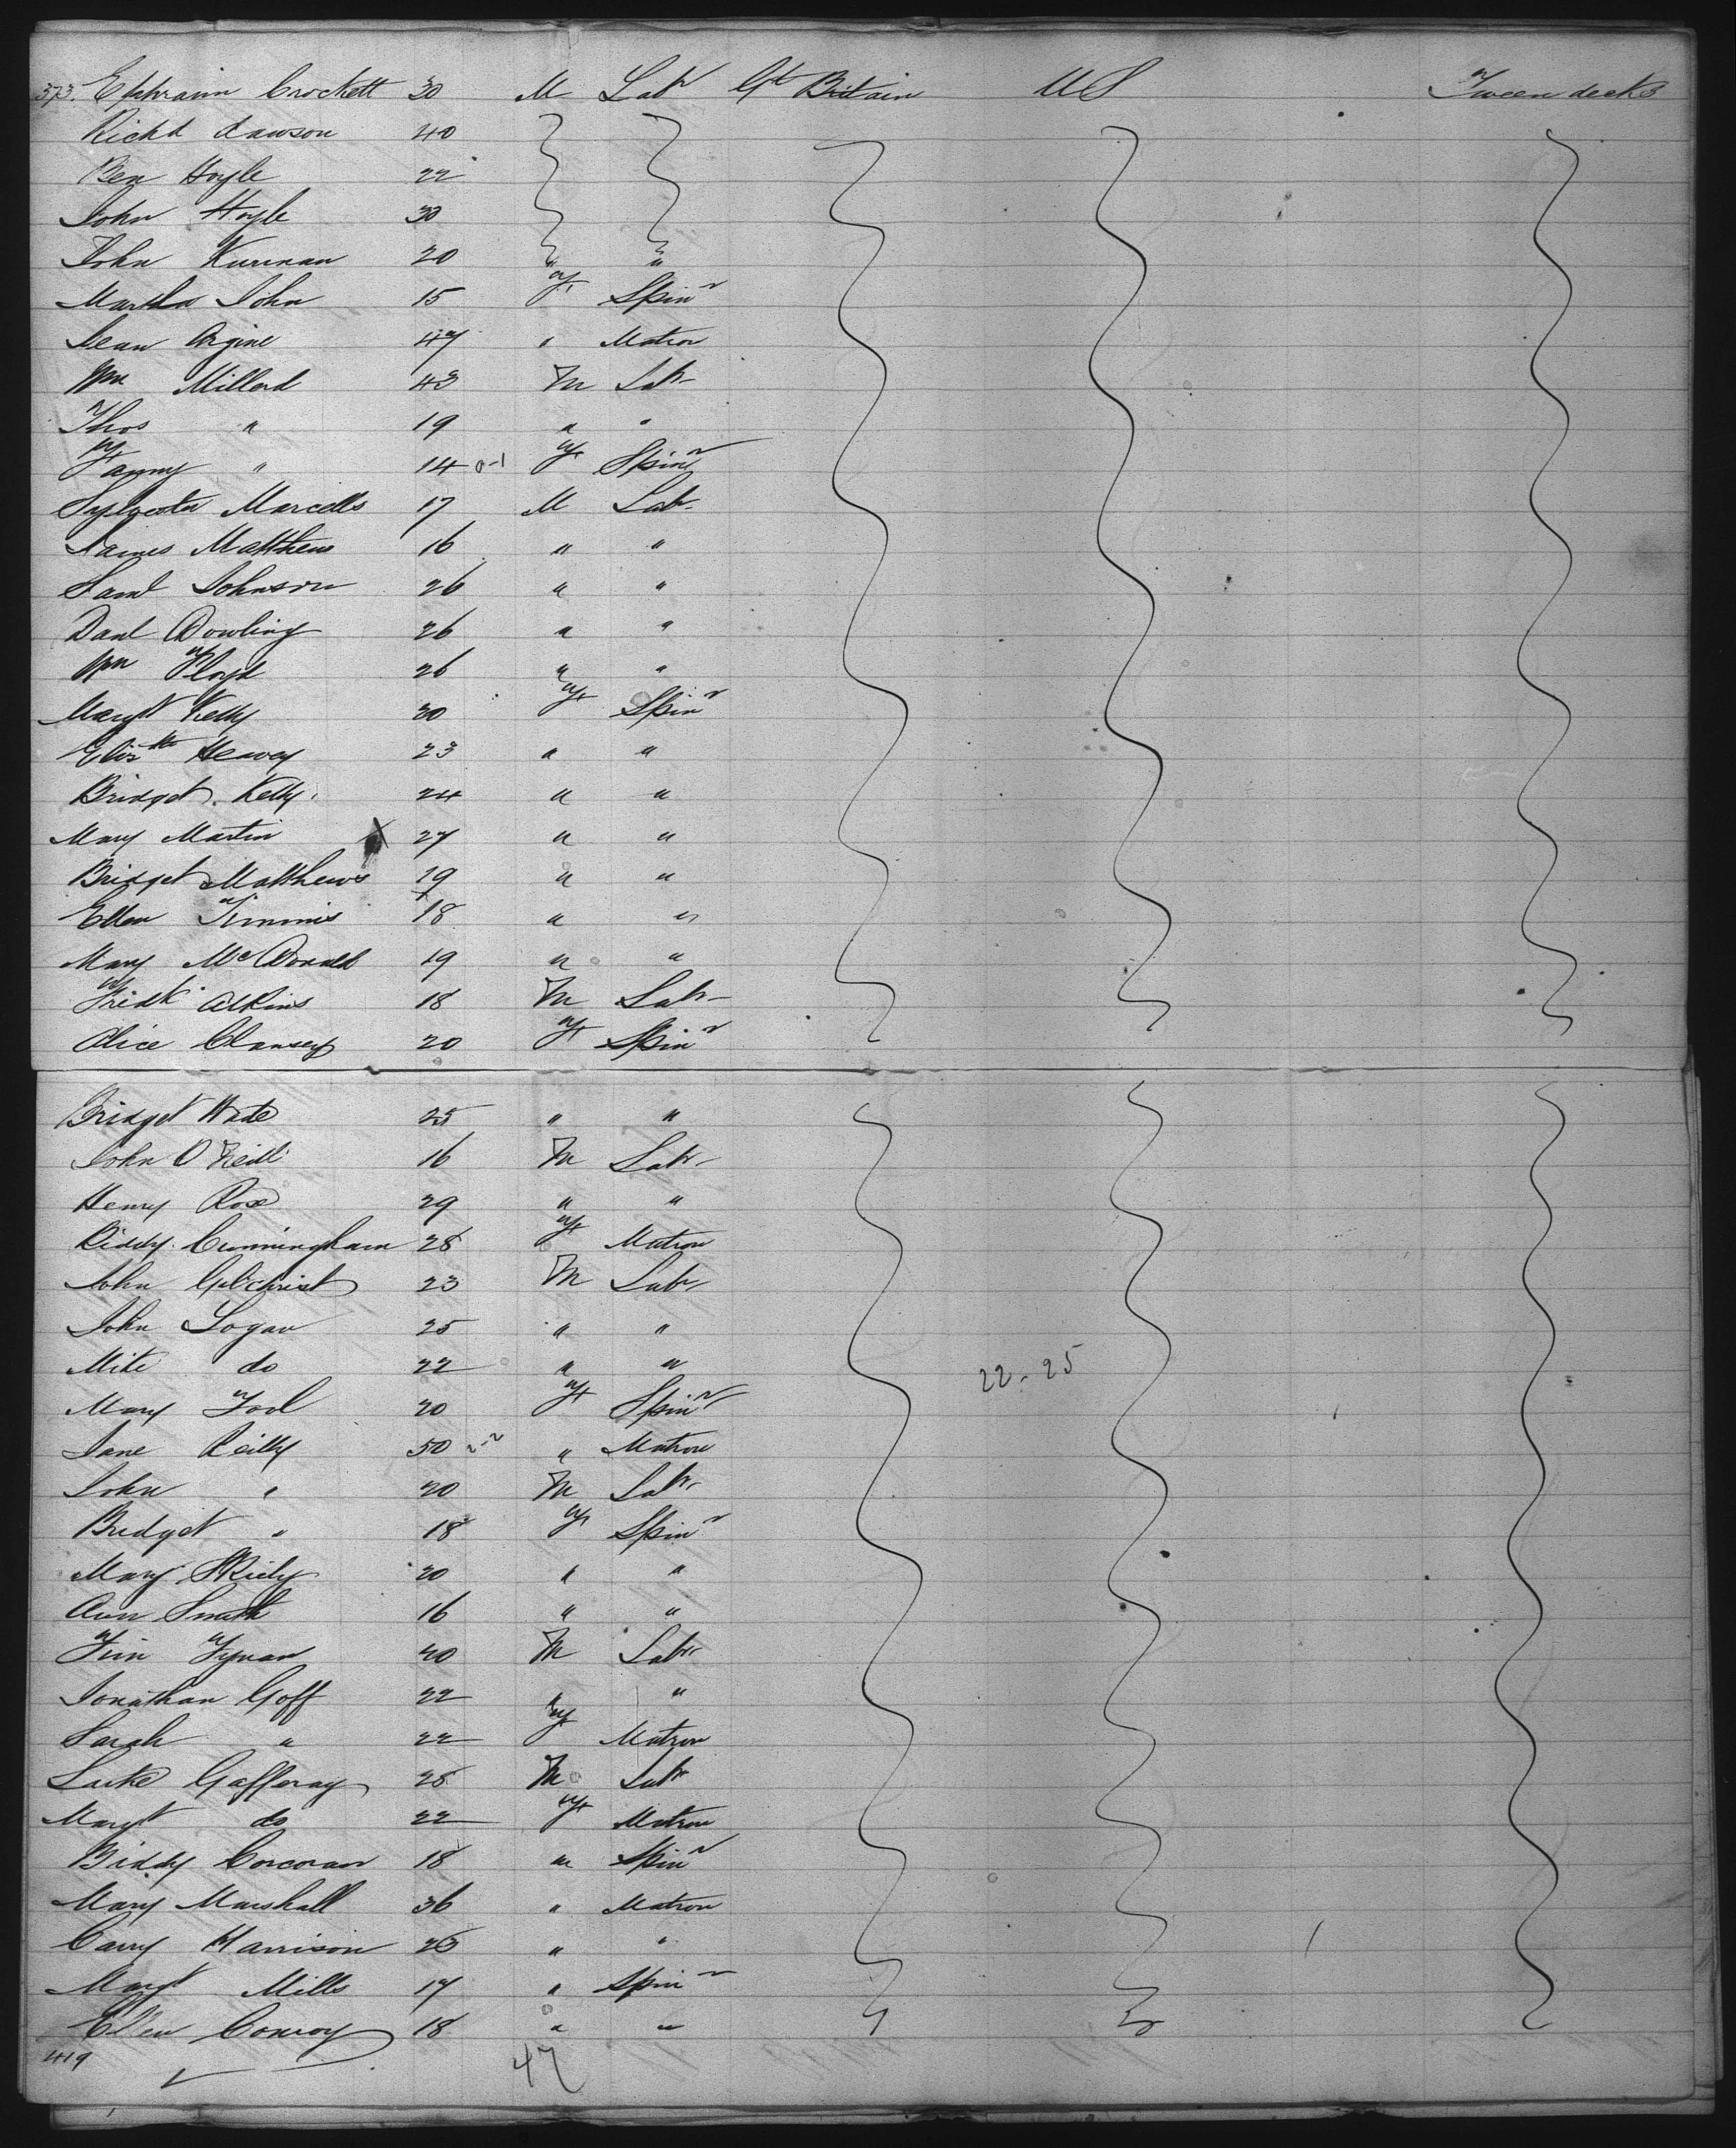 373. Ephraim Crockett 30 M Labr Gt Britain US Tween decks
Richd Lawson 40
Ben Hoyle 22
John Hoyle 30
John Kurnan 20 " "
Martha John 15 F Spinr
47 " Matron
Wm Millard 43 M Labr
Thos " 19 " "
Fanny " 14 0-1 F Spinr
Sylvester Marcells 17 M Labr
James Matthews 16 " "
Saml Johnson 26 " "
Danl Dowling 26 " "
Wm Floyd 26 " "
Margt Kelly 20 F Spinr
Elizth Heavey 23 " "
Bridget Kelly 24 " "
Mary Martin X 27 " "
Bridget Matthews 19 " "
Ellen Timmis 18 " "
Mary McDonald 19 " "
Fredk Atkins 18 M Labr
Alice Clansey 20 F Spinr
Bridget Wade 25 " "
John O'Neill 16 M Labr
Henry Rose 29 " "
Biddy Cunningham 28 F Matron
John Gilchrist 23 M Labr
John Logan 25 " "
Mike do 22 " " 22-25
Mary 20 F Spinr
Jane Reilly 50 2-2 " Matron
John " 20 M Labr
Bridget " 18 F Spinr
Mary 20 " "
Ann Smith 16 " "
Tim Tynan 20 M Labr
Jonathan Goff 22 " "
Sarah " 22 F Matron
Luke Gafferay 28 M Labr
Margt do 22 F Matron
Biddy Corcoran 18 " Spinr
Mary Marshall 36 " Matron
Carry Harrison 25 " "
Margt Mills 17 " Spinr
Ellen Conroy 18 " "
419 47